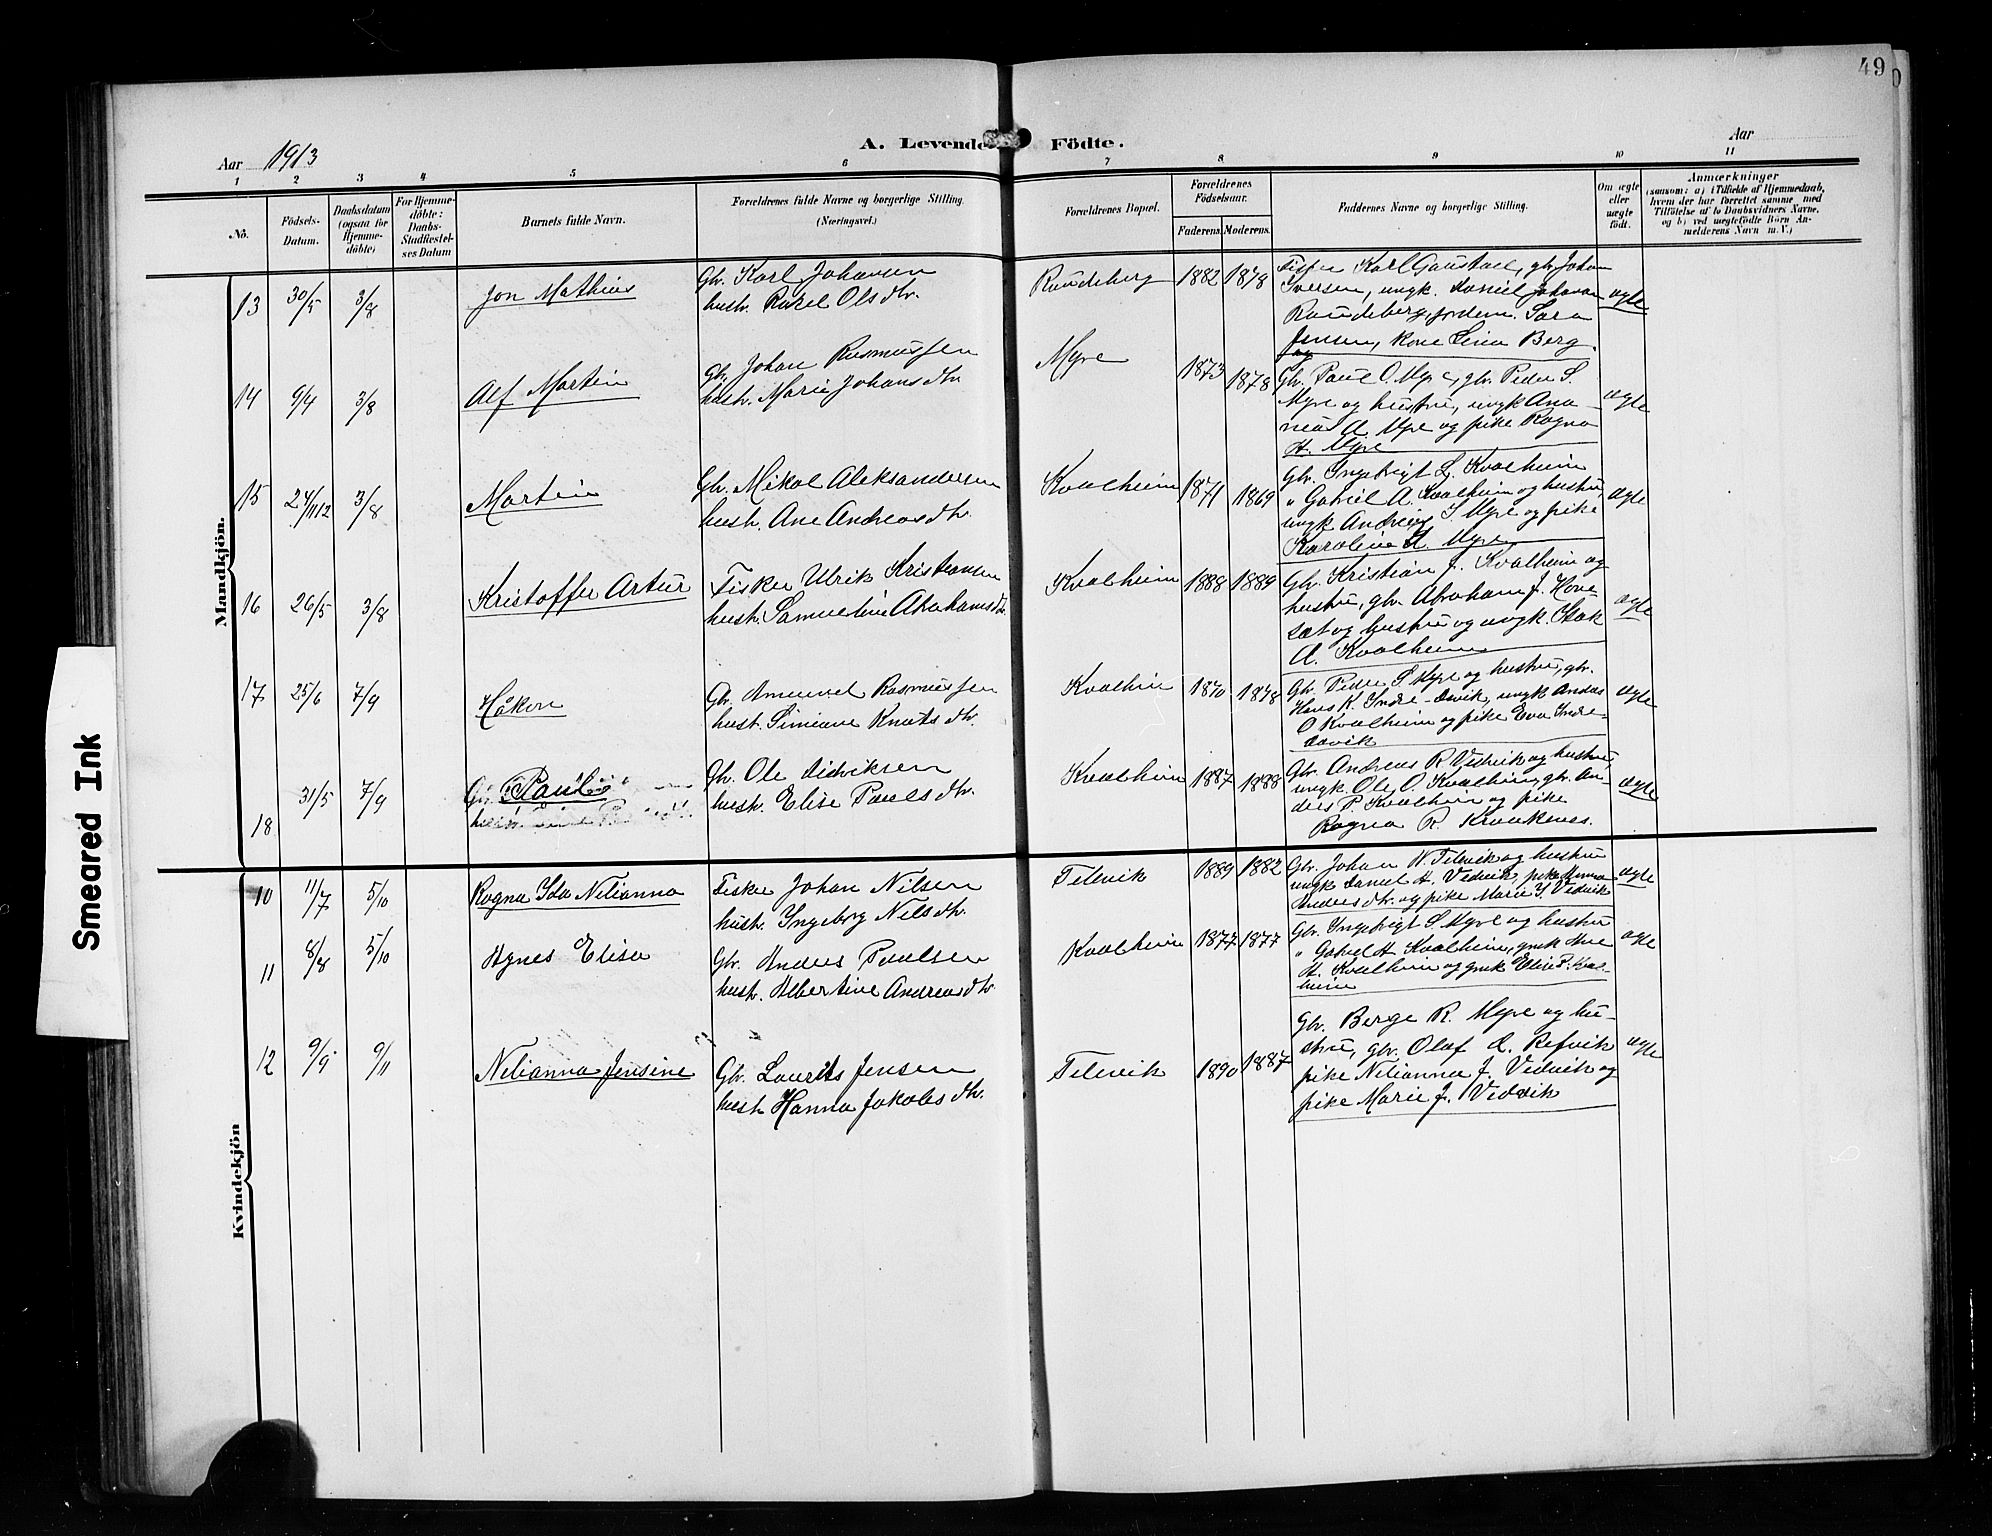 49
Aar 1913
A. Levende Födte.
Aar
1 2 3 4 5 6 7 8 9 10 11
No.
Födsels-Datum.
Daabsdatum (ogsaa for Hjemme-döbte)
For Hjemme-döbte: Daabs-Stadfæstel-ses Datum
Barnets fulde Navn.
Forældrenes fulde Navne og borgerlige Stilling. (Næringsvei.)
Forældrenes Bopæl.
Forældrenes Födselsaar.
Faderens. Moderens.
Faddernes Navne og borgerlige Stilling.
Om ægte eller uægte födt.
Anmærkninger
(saasom: a) i Tilfælde af Hjemmedaab, hvem der har forrettet samme med Tilföielse af to Daabsvidners Navne, og b) ved uægtefödte Börn An-melderens Navn m. V.)
Mandkjön.
13 30/5 3/8 Jon Mathias
Gbr. Karl Johansen
hustr. Rakel Olsdtr.
Raudeberg 1882 1878
Fisker Karl Gaustad, gbr. Johan
Iversen, ungk. Daniel Johansen
Raudeberg, jordem. Sara
Jensen, kone Lina Berg.
ægte
14 9/4 3/8 Alf Martin
Gbr. Johan Rasmussen
hustr. Marie Johansdtr.
Myre 1873 1878
Gbr. Paul O. Myre, gbr. Peder S.
Myre og hustru, ungk Ana-
nias A. Myre og pike Ragna
H. Myre
ægte
15 24/11 12 3/8 Martin
Gbr. Mikal Aleksandersen
hustr. Ane Andreasdtr.
Kvalheim 1871 1869
Gbr. Ingebrigt L. Kvalheim
" Gabriel A. Kvalheim og hustru,
ungk Andreas S. Myre og pike
Karoline A. Myre
ægte
16 26/5 3/8 Kristoffer Artur
Fisker Ulrik Kristiansen
hustr. Samueline Abrahamsdtr.
Kvalheim 1888 1889
Gbr. Kristian J. Kvalheim og
hustru, gbr. Abraham J. Hove-
sæt og hustru og ungk. Isak
A. Kvalheim
ægte
17 25/6 7/9 Håkon
Gbr. Rasmussen
hustr. Simiane Knutsdtr.
Kvalheim 1870 1878
Gbr. Peder S Myre og hustru, gbr.
Hans K. Indre-Dsvik, ungk Andas
O Kvalheim og pike Eva Indre-
Dsvik
ægte
18 31/5 7/9 Paul
Gbr. Ole Didriksen
hustr. Elise Paulsdtr.
Kvalheim 1887 1888
Gbr. Andreas R. Vedvik og hustru,
ungk. Ole O. Kvalheim, gbr. An-
ders P. Kvalheim og pike
Ragna R. Kraakenes.
ægte
Kvindekjön
10 11/7 5/10 Ragna Ida Nelianna
Fisker Johan Nilsen
hustr. Ingeborg Nilsdtr.
Telnvik 1889 1882
Gbr. Johan N. Telnvik og hustru
ungk Daniel A. Vedvik, pike Anna
Andersdtr. og pike Marie J. Vedvik
ægte
11 8/8 5/10 Agnes Elisa
Gbr. Anders Paulsen
hustr. Albertine Andreasdtr.
Kvalheim 1877 1877
Gbr. Ingebrigt S. Myre og hustru
" Gabriel A Kvalheim, gmk Ane
A. Kvalheim og gmk Elise P. Kval-
heim
ægte
12 9/9 9/11 Nelianna Jensine
Gbr. Laurits Jensen
hustr. Hanna Jakobsdtr.
Telnvik 1890 1887
Gbr. Berge R. Myre og hu-
stru, gbr. Olaf A. Refvik
pike Nelianna J. Vedvik og
pike Marie J. Vedvik
ægte
Smeared Ink